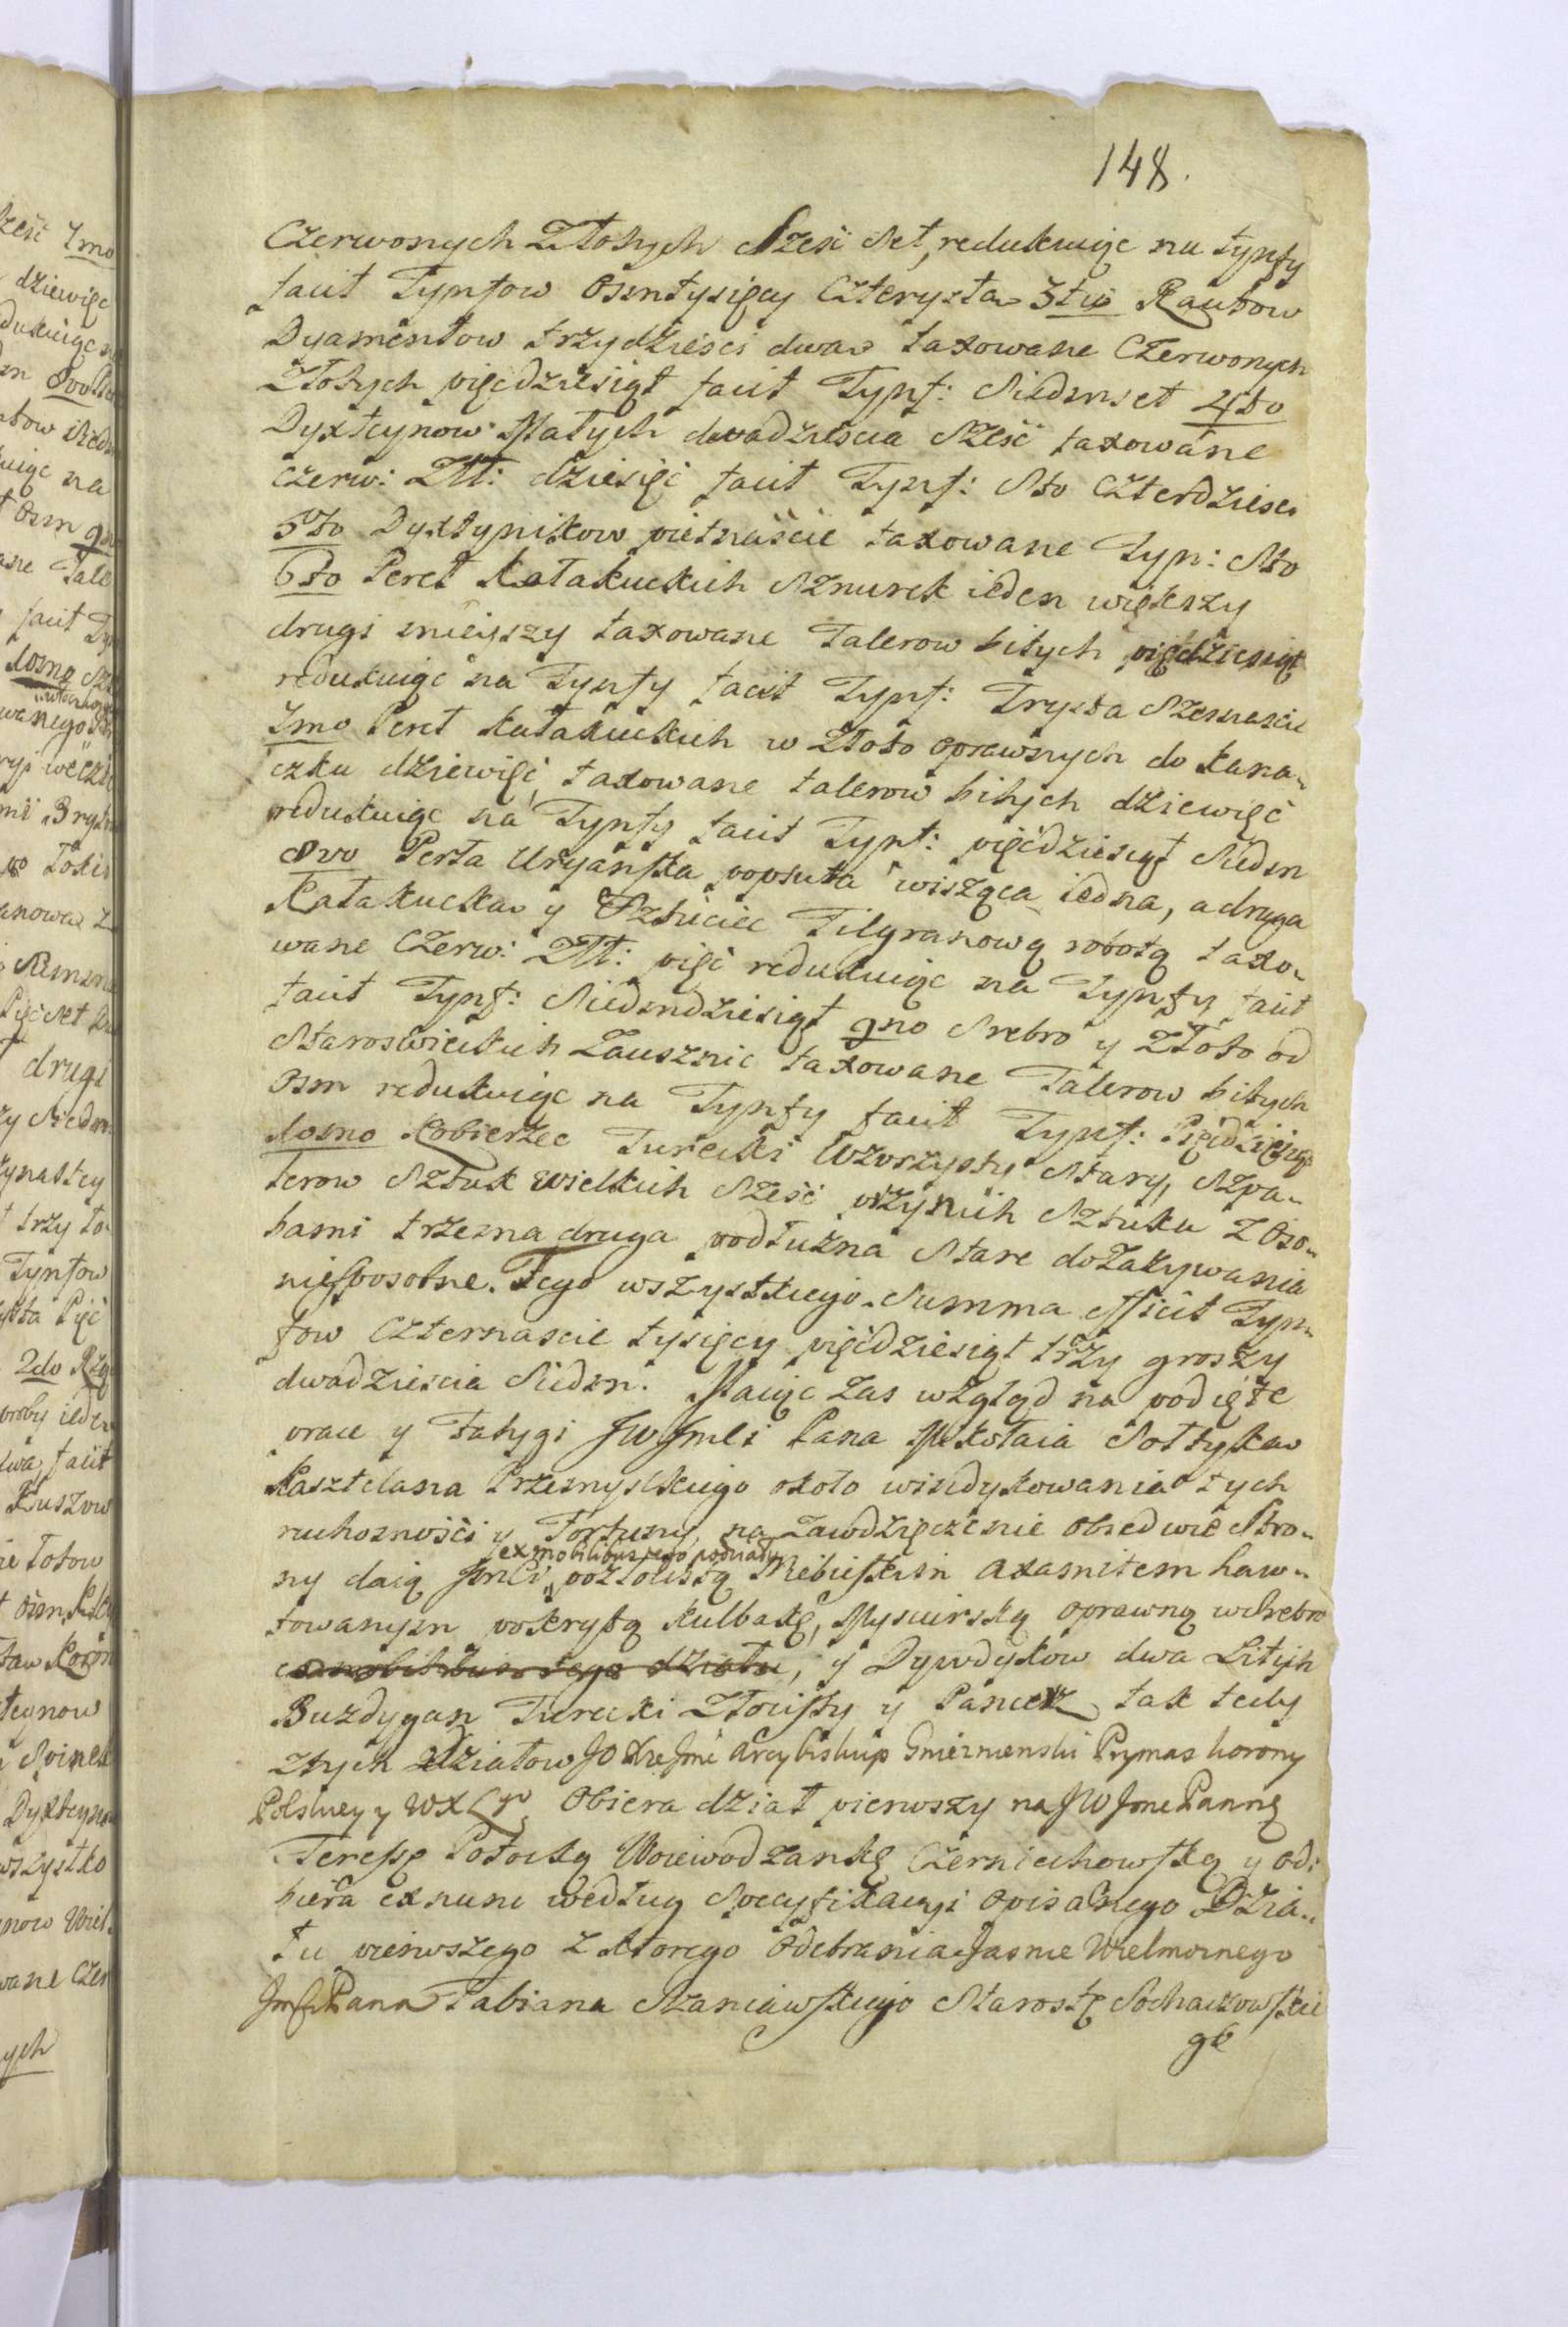 148.
Czerwonych Złotych Sześć Set, redukuiąc na tynfy
facit Tynfow Osmtysięcy Czterysta 3tio Rautow
Dyamentow trzydzieści dwa taxowane Czerwonych
Złotych pięcdziesiąt facit Tynf: Siedmset 4to
Dyxtcynow Małych dwadzieścia Sześć taxowane
czerw: Złł: dziesięć facit Tynf: Sto Czterdzieści
5to Dyxtynikow pietnaście taxowane Tyn: Sto
6to Pereł Kałakuckich Sznurek ieden większy
drugi mnieyszy taxowane Talerow bitych pięcdziesiąt
redukuiąc na Tynfy facit Tynf: Trzysta Szesnaście
7mo Pereł Kałakuckich w Złoto oprawnych do kana„
czku dziewięć, taxowane talerow bitych dziewięć
redukuiąc na Tynfy facit Tynf: pięćdziesiąt Siedm
8vo Perła Uryańska popsuta wisząca iedna, a druga
Kałakucka y Sztuciec Filgranową robotą taxo„
wane Czerw: Złł: pięć redukuiąc na Tynfy facit
facit Tynf: Siedmdziesiąt 9no Srebro y Złoto od
Staroswieckich Zausznic taxowane Talerow bitych
Osm redukuiąc na Tynfy facit Tynf: Pięćdziesiąt
10mo Kobierzec Turecki Wzorzysty Stary, Szpa„
lerow Sztuk Wielkich Sześć przy nich Sztuka z Oso„
bami trzema druga podłużna Stare do Zażywania
niesposobne. Tego wszystkiego Summa efficit Tyn„
fow Czternascie tysięcy pięćdziesiąt trzy groszy
dwadzieścia Siedm. Maiąc zas wzgląd na podięte
prace y fatygi JW Jmci Pana Mikołaia Sołtyka
Kasztelana Przemyslkiego około windykowania tych
ruchomości y Fortuny, na zawdzięczenie obiedwie Stro„
ny daią Jmci, ex mobilibus tego podziału pozłocistą Axamitem haw„
towanym pokrytą kulbakę, Myscirską oprawną w Srebro
ex mobilibus tego działu, y Dywdykow dwa Litych
Buzdygan Turecki Złocisty y Pancerz tak tedy
z tych działow JO Xże Jmć Arcybiskup Gnieznienski Prymas korony
Polskiey y WXL Obiera dział pierwszy na JW Jmć Pannę
Teressę Potocką Woiewodzankę Czerniechowską y od:
biera ex nunc według Specyfikacyi opisanego Dzia„
łu pierwszego z ktorego odebrania Jasnie Wielmożnego
Jmci Pana Fabiana Szaniawskiego Starostę Sochaczewskie
go